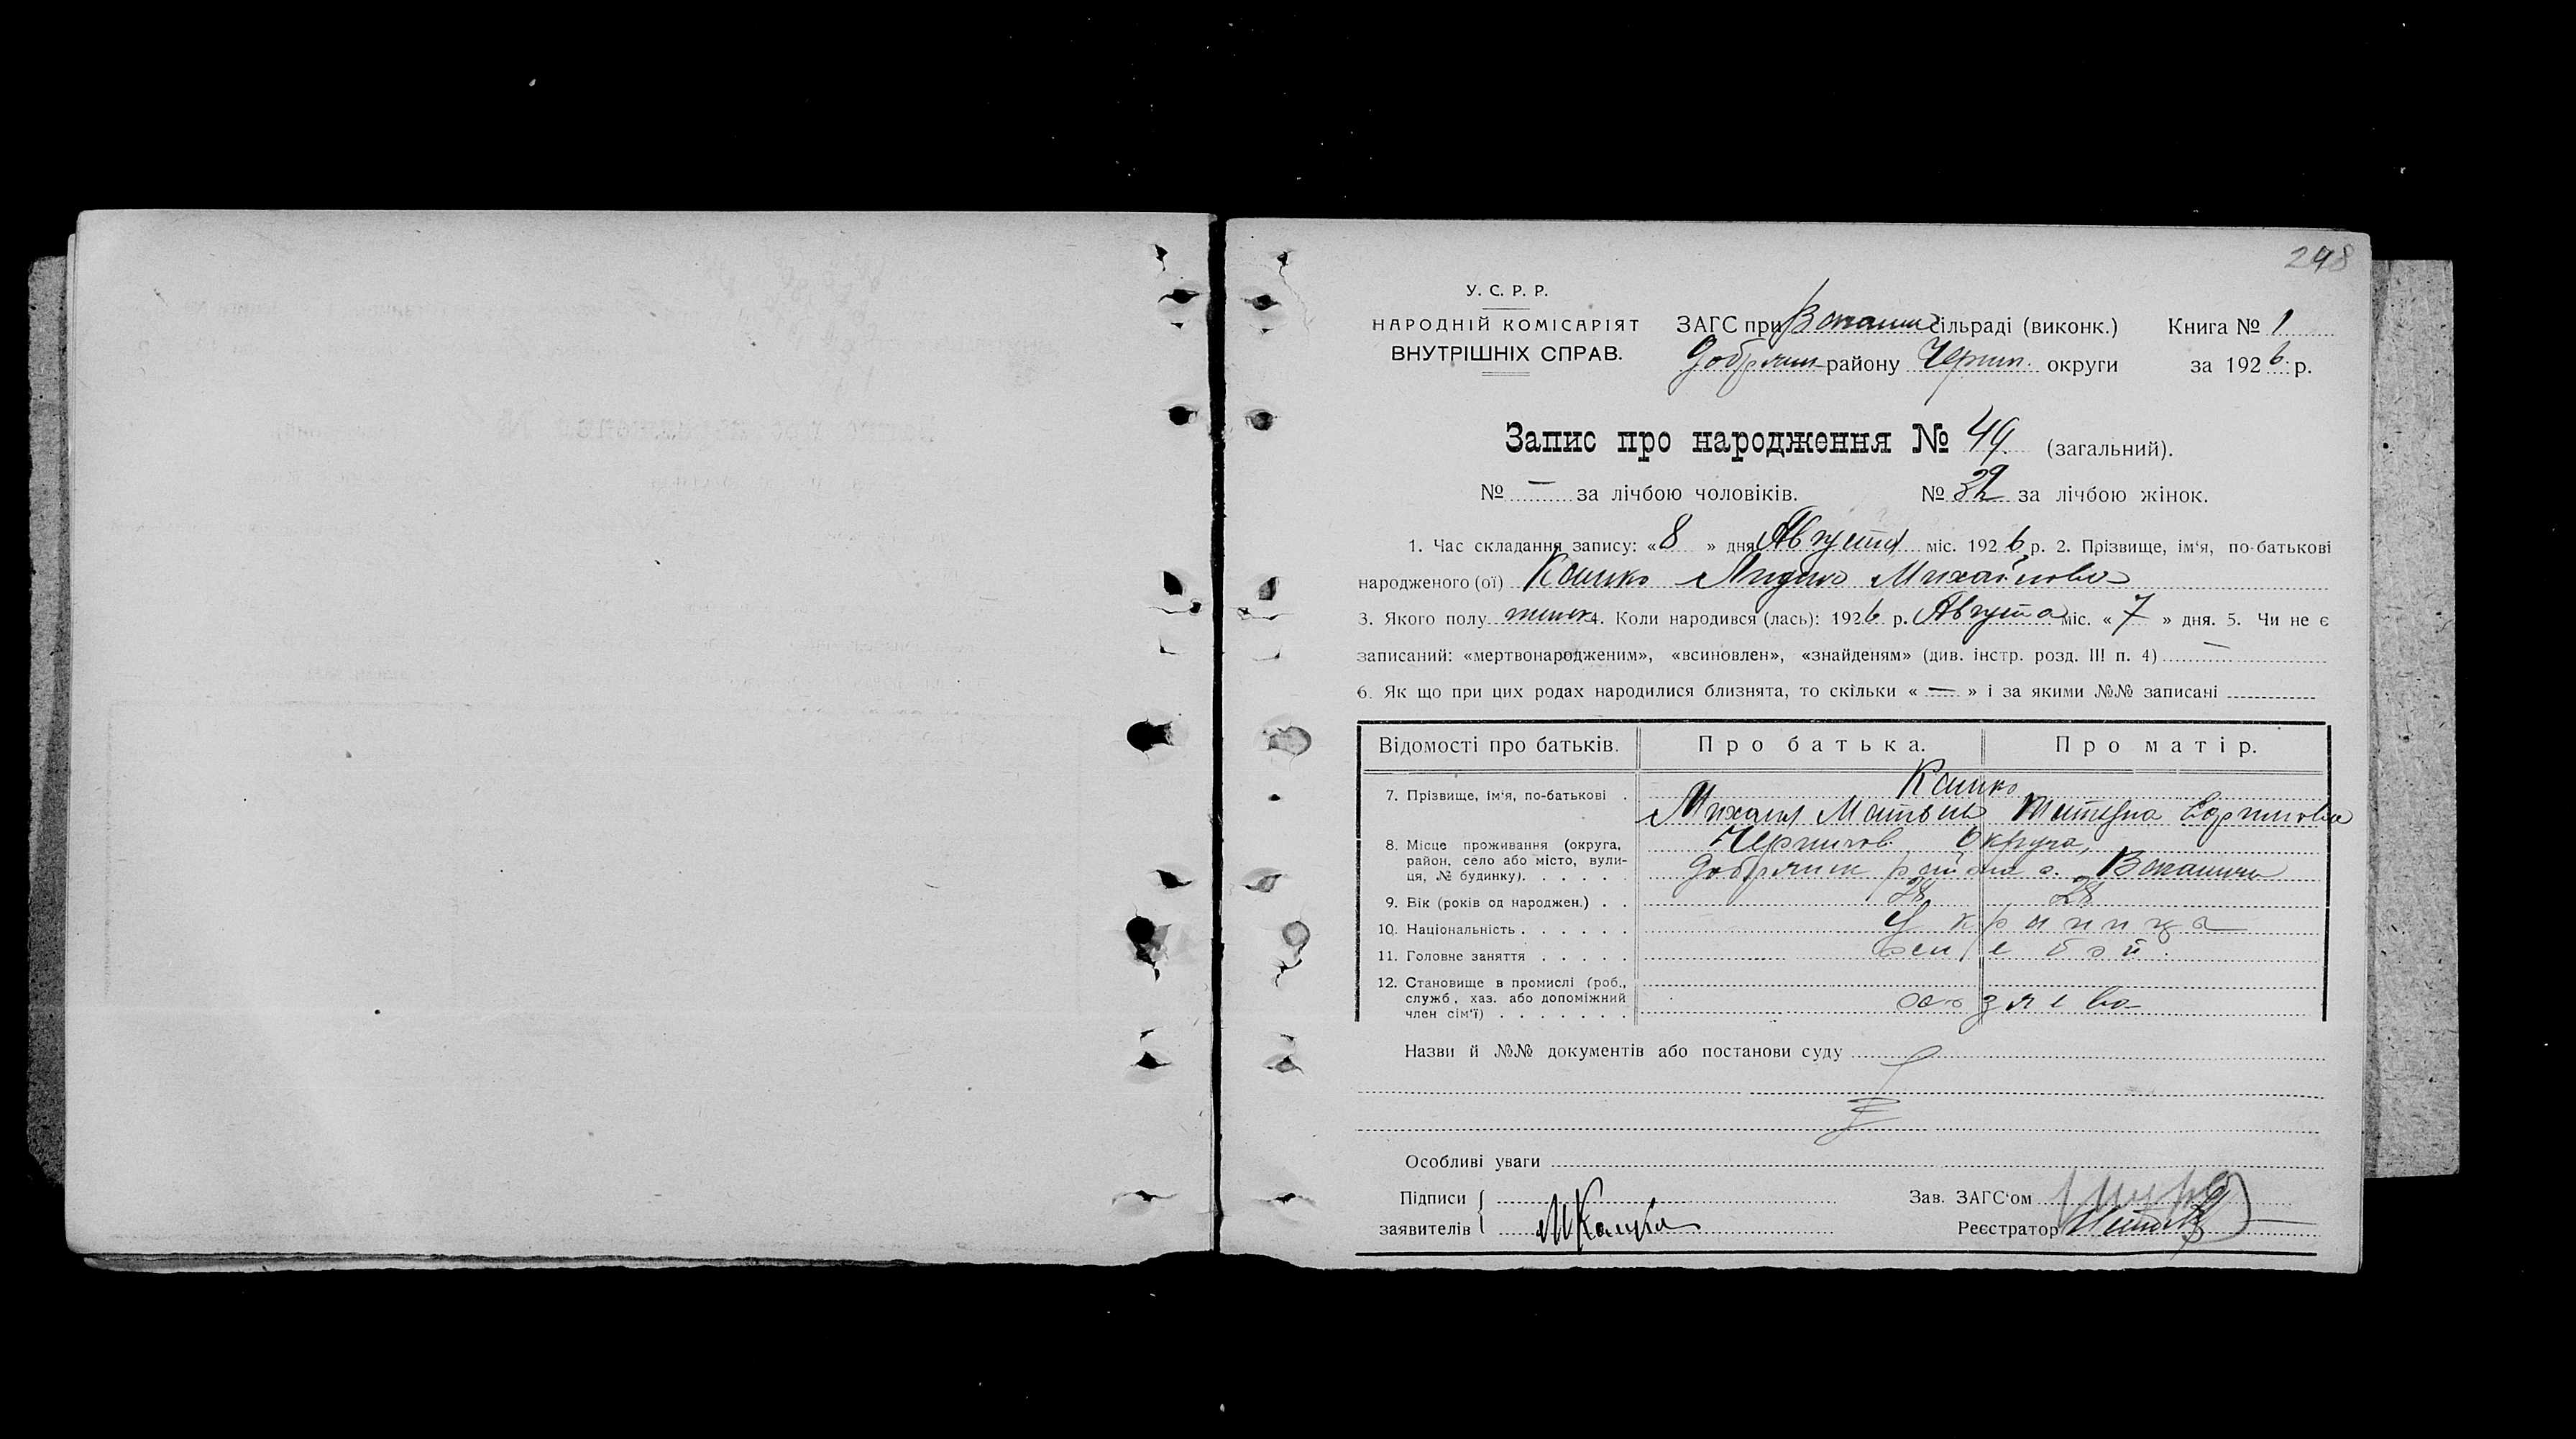 298
У. С. Р. Р.
НАРОДНІЙ КОМІСАРІЯТ
ВНУТРІШНІХ СПРАВ.
ЗАГС при сільраді (виконк.) Книга № 1
Добрян району Черниг. округи за 1926 р.
Запис про народження № 49 (загальний).
№ — за лічбою чоловіків. № за лічбою жінок.
1. Час складання запису: «8» дня Августа міс. 1926 р. 2. Прізвище, ім'я, по-батькові
народженого (ої) Кошко Лидия Михайлова
3. Якого полу женск 4. Коли народився (лась): 1926 р. Августа міс. «7» дня. 5. Чи не є
записаний: «мертвонародженим», «всиновлен», «знайденям» (див. інстр. розд. III п. 4) —
6. Як що при цих родах народилися близнята, то скільки « — » і за якими №№ записані
Відомості про батьків. Про батька. Про матір.
7. Прізвище, ім'я, по-батькові . Кошко
Михаил Матвеев Татьяна
8. Місце проживання (округа, Чернигов Округа,
район, село або місто, вули-
ця, № будинку). . . . . . района с.
9. Вік (років од народжен.) . . 28 28
10. Національність . . . . . . Украинца
11. Головне заняття . . . . .
12. Становище в промислі (роб.,
служб, хаз. або допоміжний
член сім'ї) . . . . . . . хозяева
Назви й №№ документів або постанови суду
Особливі уваги
Підписи
заявителів М Кошко
Зав. ЗАГС'ом
Реєстратор